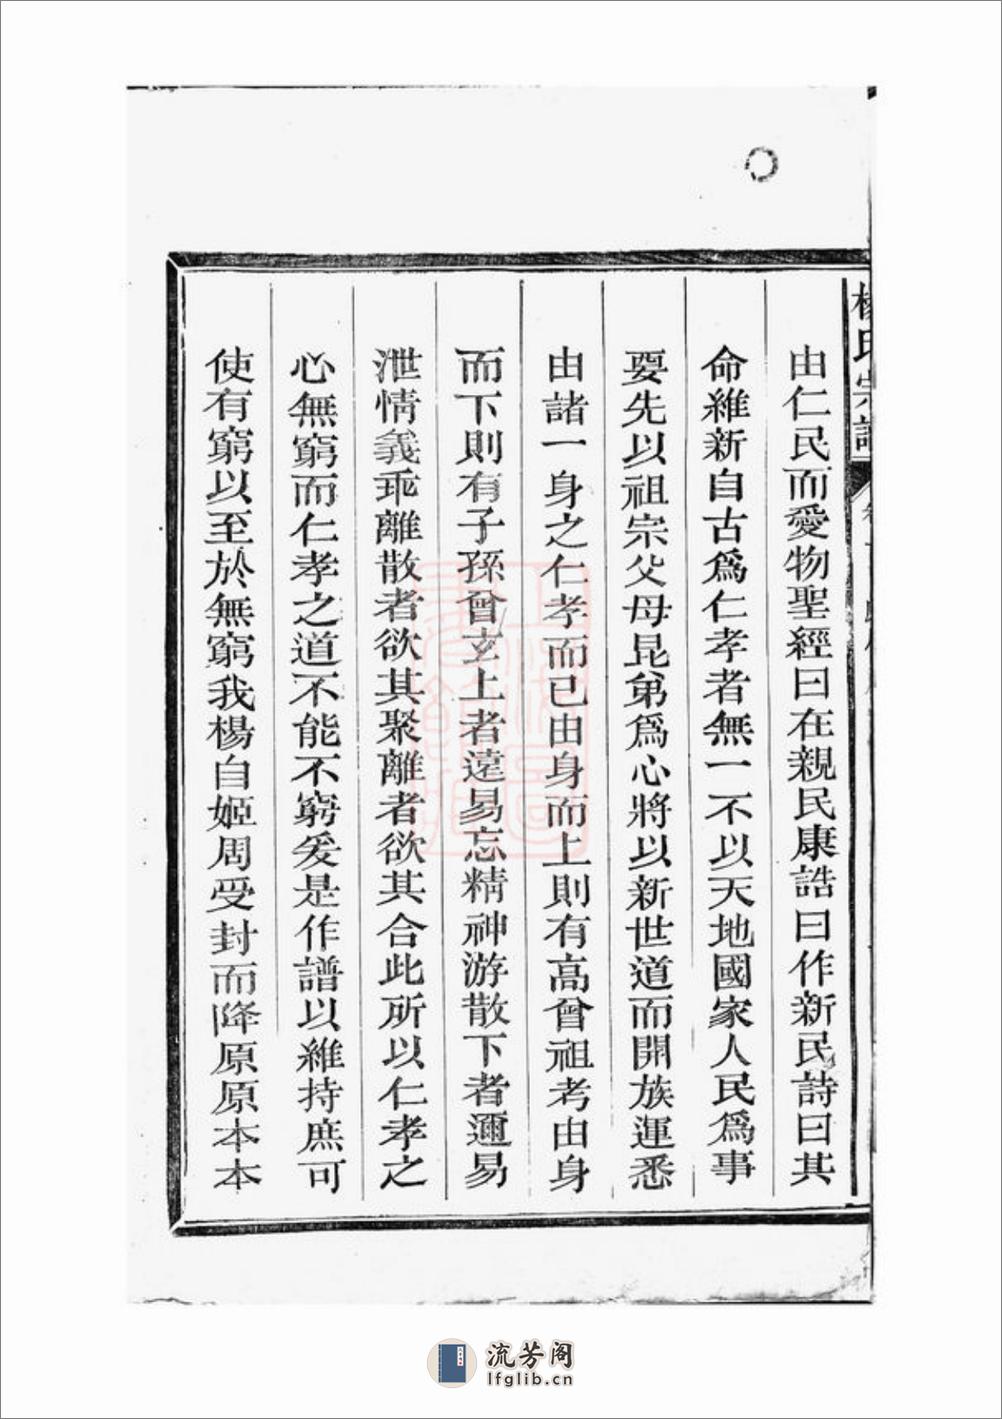 楊氏宗譜
由仁民而愛物聖經曰在親民康誥曰作新民詩曰其
命維新自古爲仁孝者無一不以天地國家人民爲事
要先以祖宗父母昆弟爲心將以新世道而開族運悉
由諸一身之仁孝而已由身而上則有高曾祖考由身
而下則有子孫曾玄上者遠易忘精神游散下者邇易
泄情義乖離散者欲其聚離者欲其合此所以仁孝之
心無窮而仁孝之道不能不窮爰是作譜以維持庶可
使有窮以至於無窮我楊自姬周受封而降原原本本
流芳阁
lfglib.cn